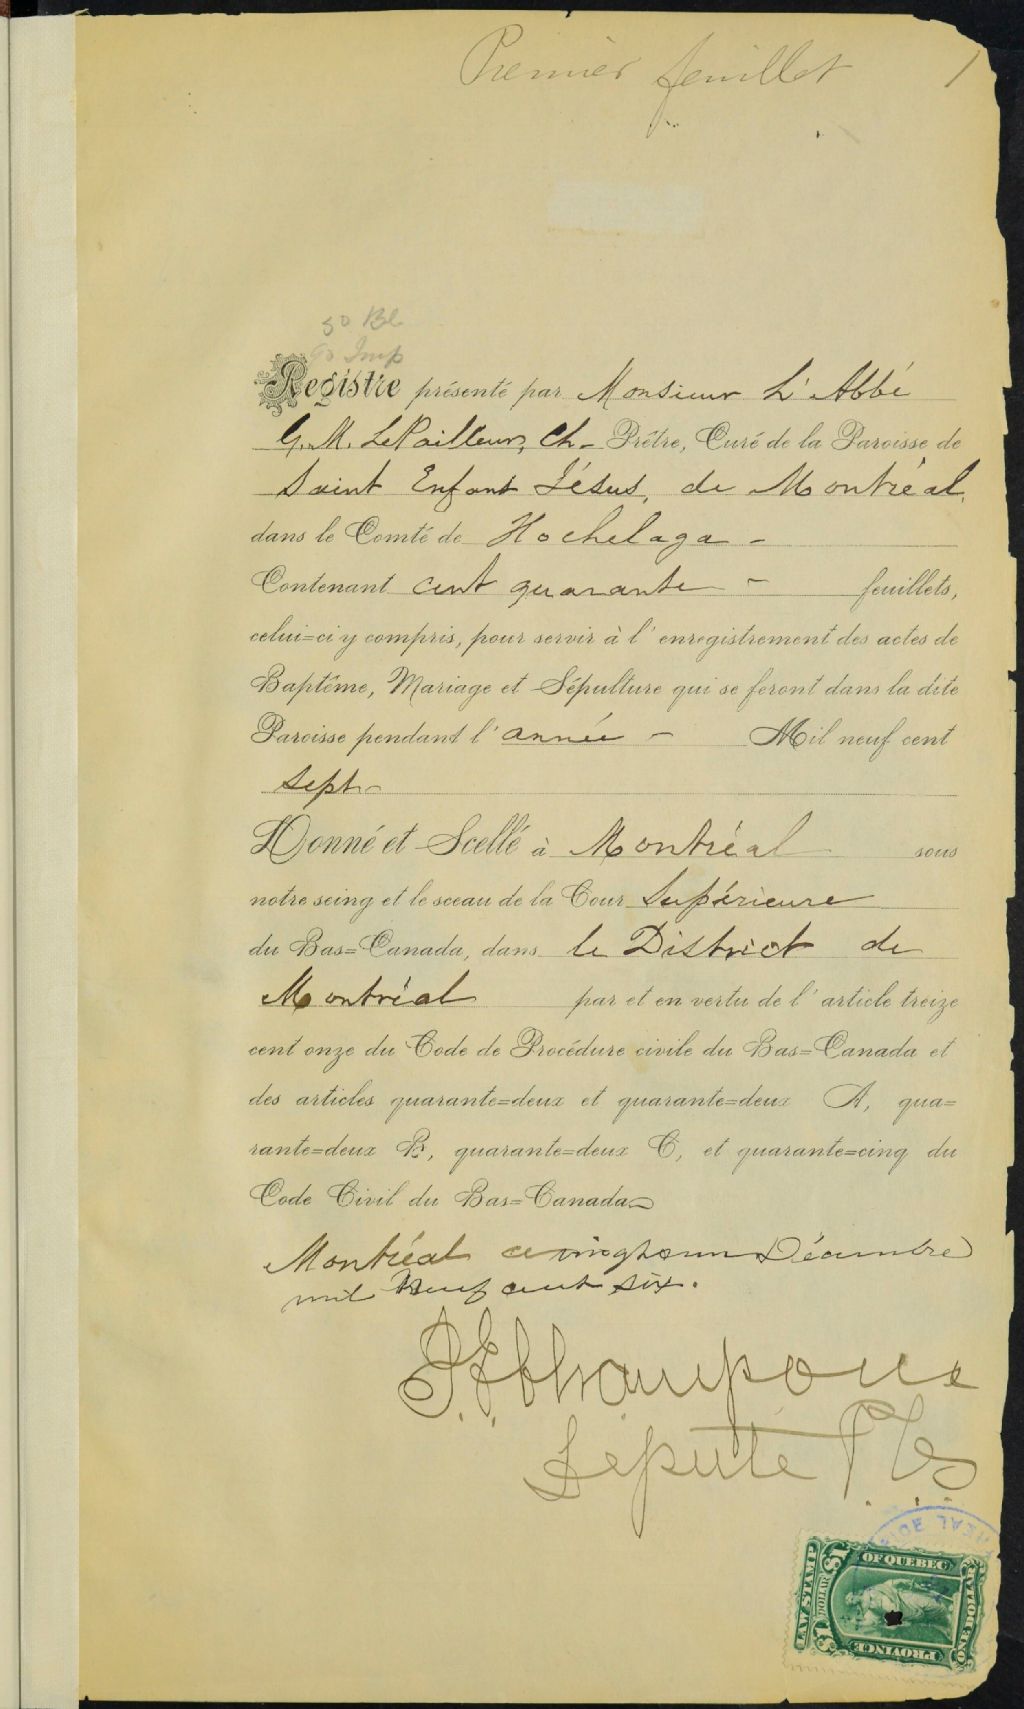 Premier feuillet 1
50 Bl
90 Imp
Registre présenté par Monsieur L'Abbé
G. M. LePailleur, Ch- Prêtre, Curé de la Paroisse de
Saint Enfant Jésus, de Montréal,
dans le Comté de Hochelaga -
Contenant cent quarante - feuillets,
celui=ci y compris, pour servir à l'enregistrement des actes de
Baptême, Mariage et Sépulture qui se feront dans la dite
Paroisse pendant l'année - Mil neuf cent
sept -
Donné et Scellé à Montréal sous
notre seing et le sceau de la Cour Supérieure
du Bas=Canada, dans le District de
Montréal par et en vertu de l'article treize
cent onze du Code de Procédure civile du Bas=Canada et
des articles quarante=deux et quarante=deux A, qua=
rante=deux B, quarante=deux C, et quarante=cinq du
Code Civil du Bas=Canada
Montréal ce vingt un Décembre
mil neuf cent six.
Champoux
Député P.
LAW STAMP
$1 DOLLAR $1
PROVINCE
OF QUEBEC
ONE DOLLAR